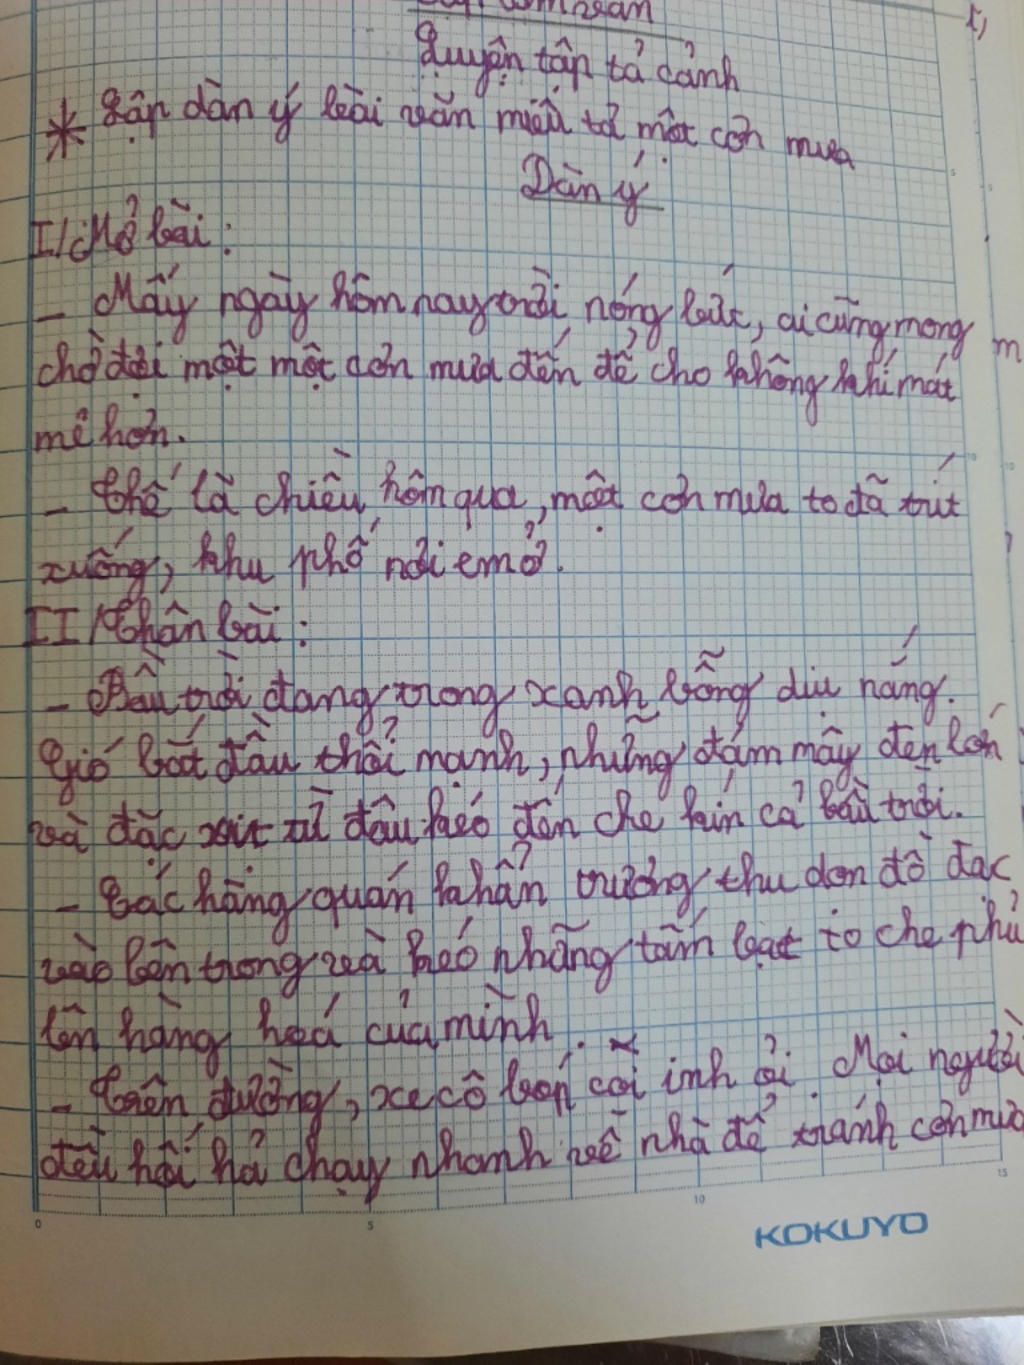 Luyện tập tả cảnh
* Lập dàn ý bài văn miêu tả một cơn mưa
Dàn ý
I/ Mở bài:
- Mấy ngày hôm nay trời nóng bức, ai cũng mong
chờ đợi một một cơn mưa đến để cho không khí mát
mẻ hơn.
- Thế là chiều hôm qua, một cơn mưa to đã trút
xuống, khu phố nơi em ở.
II/ Thân bài:
- Bầu trời đang trong xanh bỗng dịu nắng.
Gió bắt đầu thổi mạnh, những đám mây đen lớn
và đặc xịt từ đâu kéo đến che kín cả bầu trời.
- Các hàng quán khẩn trương thu dọn đồ đạc
vào bên trong và kéo những tấm bạt to che phủ
lên hàng hoá của mình.
- Trên đường, xe cộ bóp còi inh ỏi. Mọi người
đều hối hả chạy nhanh về nhà để tránh cơn mưa
0 5 10 15
KOKUYO